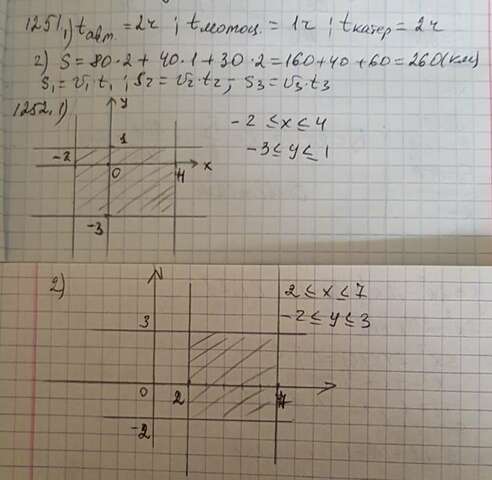 1251.1) tавт. = 2ч ; tмотоц. = 1ч ; tкатер = 2ч
2) S = 80·2 + 40·1 + 30·2 = 160 + 40 + 60 = 260 (км)
S₁ = v₁·t₁ ; S₂ = v₂·t₂ ; S₃ = v₃·t₃
1252.1)
y
-2 ≤ x ≤ 4
-3 ≤ y ≤ 1
1
-2
0
4
x
-3
2)
N
2 ≤ x ≤ 7
-2 ≤ y ≤ 3
3
0
2
7
-2